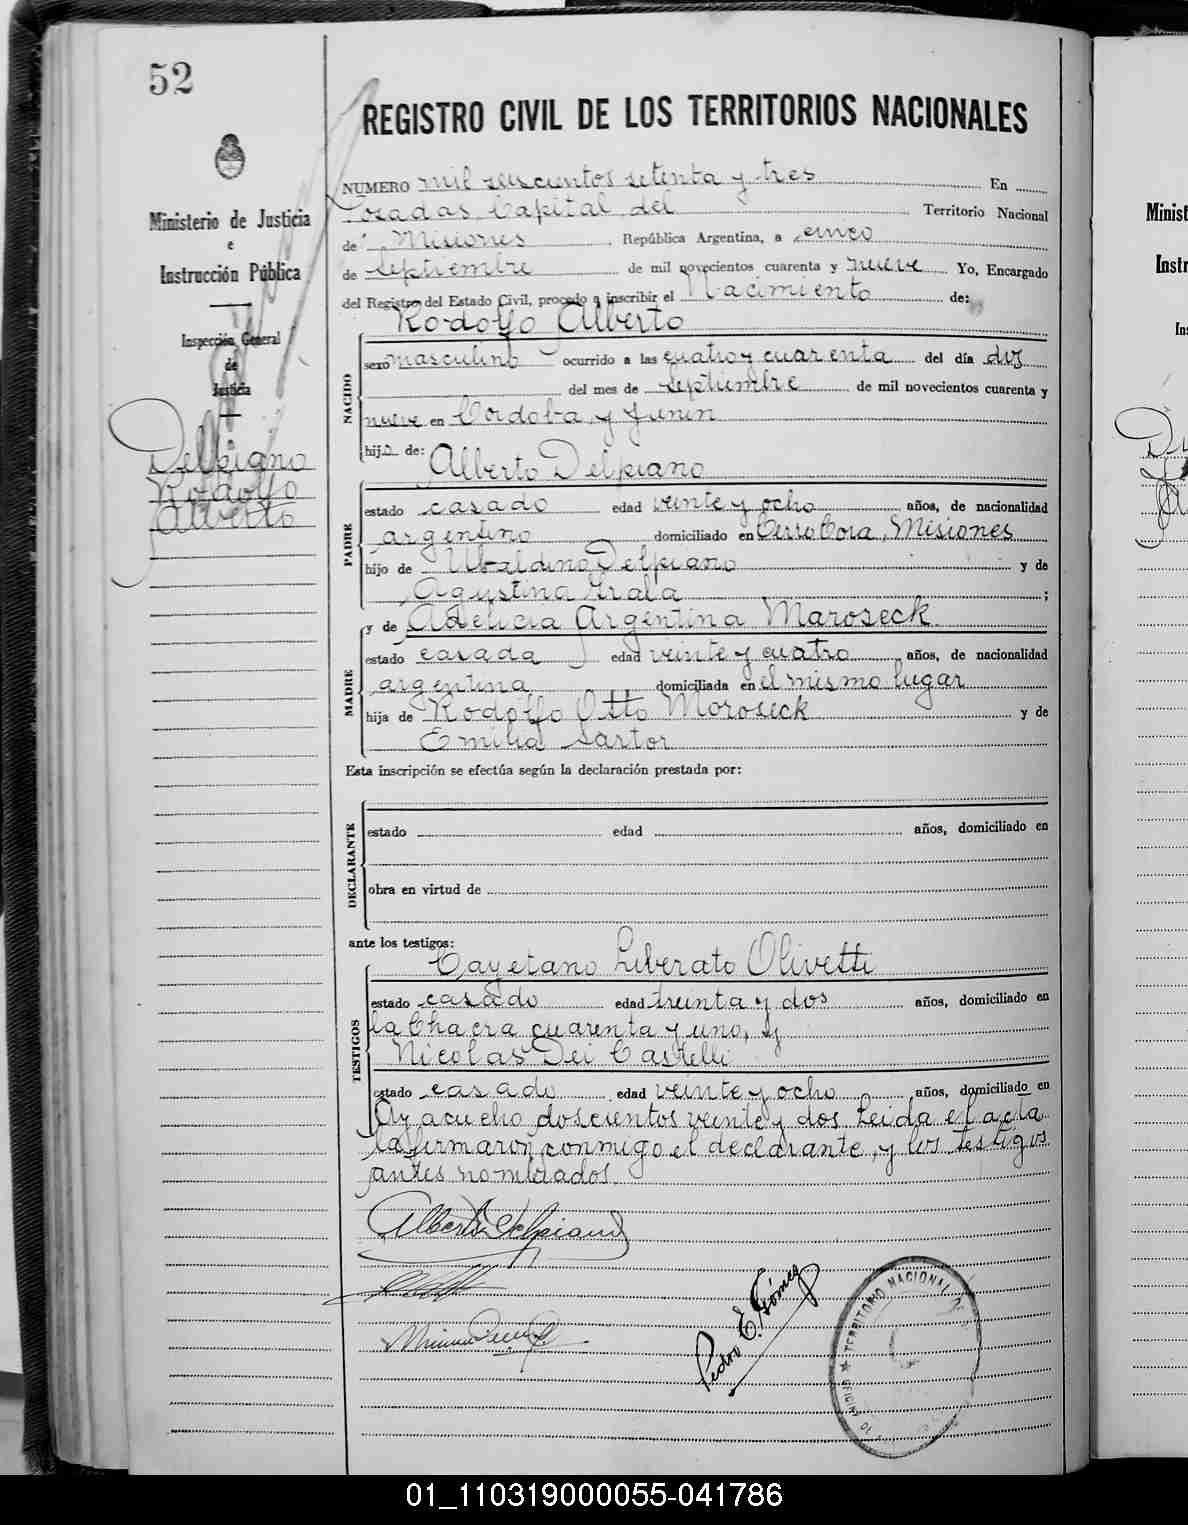 52
REGISTRO CIVIL DE LOS TERRITORIOS NACIONALES
Ministerio de Justicia
e
Instrucción Pública
Inspección General
de
Justicia
Delpiano
Rodolfo
Alberto
NUMERO mil seiscientos setenta y tres En
Posadas, Capital del Territorio Nacional
de Misiones, República Argentina, a cinco
de septiembre de mil novecientos cuarenta y nueve Yo, Encargado
del Registro del Estado Civil, procedo a inscribir el Nacimiento de:
Rodolfo Alberto
NACIDO
sexo masculino ocurrido a las cuatro y cuarenta del día
del mes de septiembre de mil novecientos cuarenta y
nueve en Cordoba y Junin
hijo de: Alberto Delpiano
PADRE
estado casado edad veinte y ocho años, de nacionalidad
argentino domiciliado en Cerro Cora, Misiones
hijo de Ubaldino Delpiano y de
Agustina Irala ;
y de Adelicia Argentina Maroseck
MADRE
estado casada edad veinte y cuatro años, de nacionalidad
argentina domiciliada en el mismo lugar
hija de Rodolfo Otto Moroseck y de
Emilia Sartor
Esta inscripción se efectúa según la declaración prestada por:
DECLARANTE
estado edad años, domiciliado en
obra en virtud de
ante los testigos:
Cayetano Liberato Olivetti
TESTIGOS
estado casado edad treinta y dos años, domiciliado en
la Chacra cuarenta y uno, y
Nicolas Dei Castelli
estado casado edad veinte y ocho años, domiciliado en
Ayacucho doscientos veinte y dos Leida el acta
la firmaron conmigo el declarante, y los testigos
antes nombrados.
Alberto Delpiano
Pedro E. Gómez
TERRITORIO NACIONAL DE
Minist
Inst
01_110319000055-041786